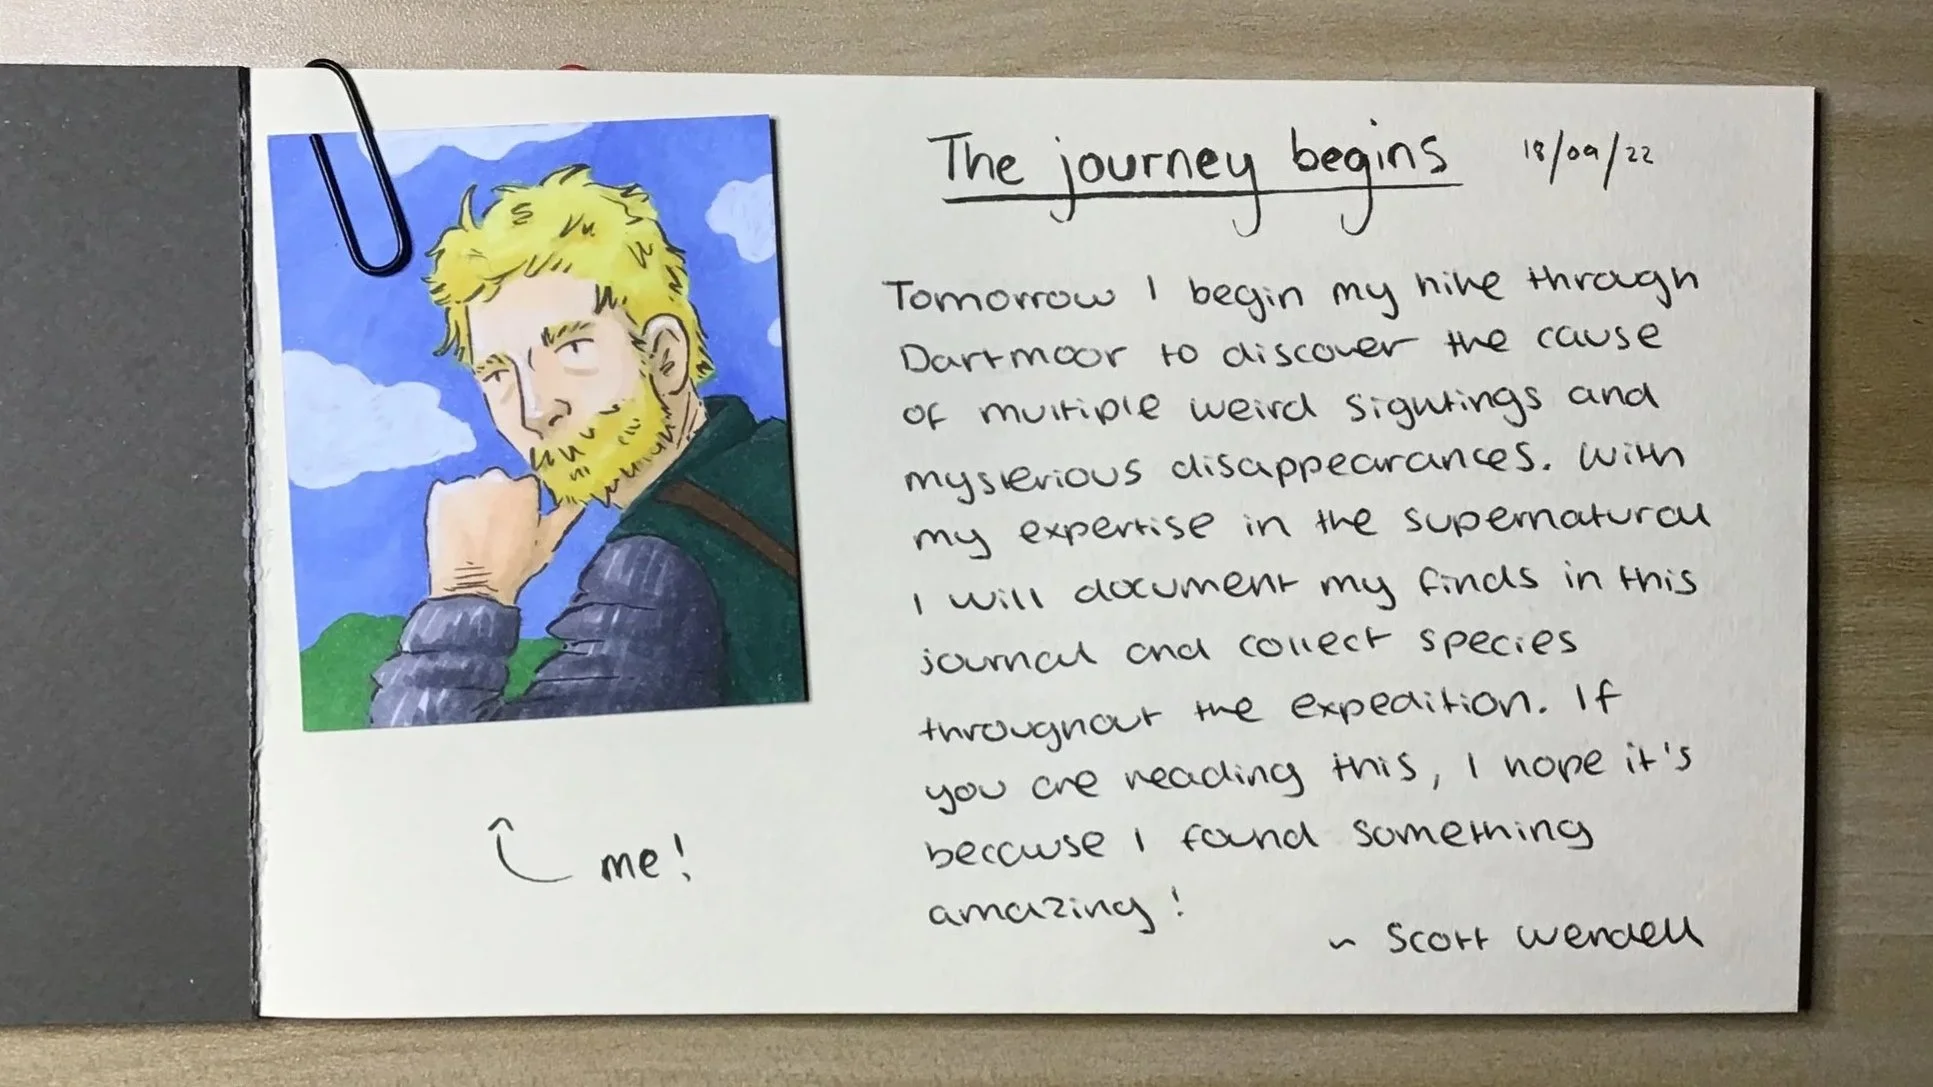 The journey begins 18/09/22
Tomorrow I begin my hike through
Dartmoor to discover the cause
of multiple weird sightings and
mysterious disappearances. With
my expertise in the supernatural
I will document my finds in this
journal and collect species
throughout the expedition. If
you are reading this, I hope it's
because I found something
amazing!
~ Scott Wendell
me!